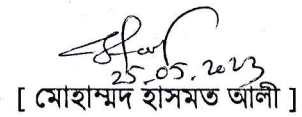 25.05.2023
[ মোহাম্মদ হাসমত আলী ]